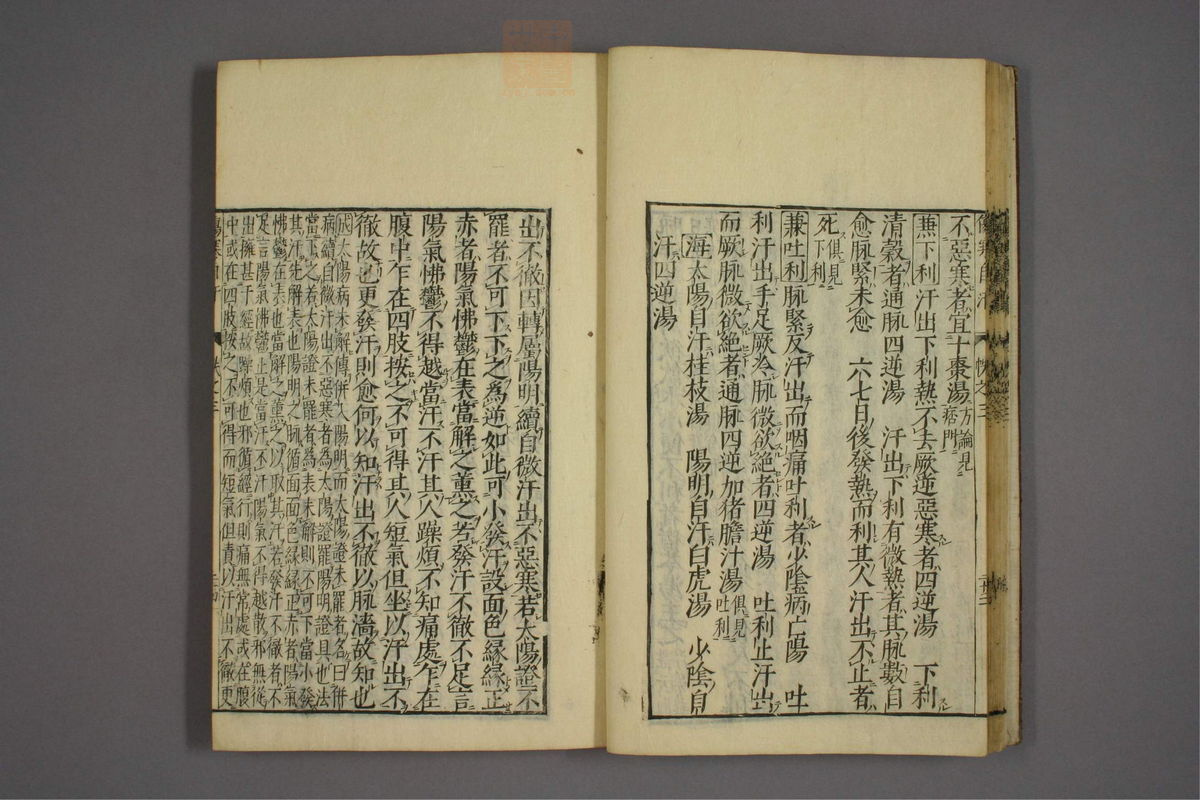 不惡寒者宜十棗湯方論見痞門
兼下利汗出下利熱不去厥逆惡寒者四逆湯　下利
清穀者通脉四逆湯　汗出下利有微熱者其脉數自
愈脉緊未愈　六七日後發熱而利其人汗出不止者
死俱見下利
兼吐利脉緊反汗出而咽痛吐利者少陰病亡陽　吐
利汗出手足厥冷脉微欲絶者四逆湯　吐利止汗出
而厥脉微欲絶者通脉四逆加猪膽汁湯俱見吐利
海太陽自汗桂枝湯　陽明自汗白虎湯　少陰自
汗四逆湯
出不徹因轉屬陽明續自微汗出不惡寒若太陽證不
罷者不可下下之為逆如此可小發汗設面色縁縁正
赤者陽氣怫鬱在表當解之薫之若發汗不徹不足言
陽氣怫鬱不得越當汗不汗其人躁煩不知痛處乍在
腹中乍在四肢按之不可得其人短氣但坐以汗出不
徹故也更發汗則愈何以知汗出不徹以脉濇故知也
因太陽病未解傳併入陽明而太陽證未罷者名曰併
病續自微汗出不惡寒者為太陽證罷陽明證具也法
當下之若太陽證未罷者為表未解則不可下當小發
其汗先解表也陽明之脉循面面色縁縁正赤者陽氣
怫鬱在表也當解之薫之以取其汗若發汗不徹者不
足言陽氣怫鬱止是當汗不汗陽氣不得越散邪無從
出擁甚于經故躁煩也邪循經行則痛無常處或在腹
中或在四肢按之不可得而短氣但責以汗出不徹更